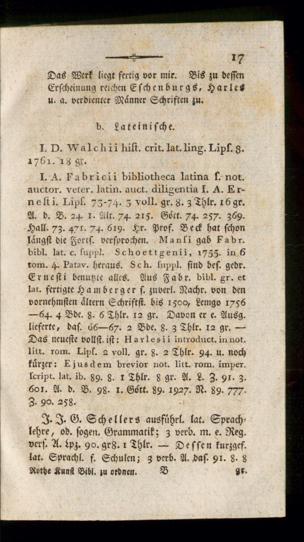 17
Das Werk liegt fertig vor mir. Bis zu dessen
Erscheinung reichen Eschenburgs, Harles
u. a. verdienter Männer Schriften zu.
b. Lateinische.
I. D. Walchii hist. crit. lat. ling. Lips. 8.
1761. 18 gr.
I. A. Fabricii bibliotheca latina s. not.
auctor. veter. latin. auct. diligentia I. A. Er-
nesti. Lips. 73-74. 3 voll. gr. 8. 3 Thlr. 16 gr.
A. d. B. 24. 1. Alt. 74. 215. Gött. 74. 257. 369.
Hall. 73. 471. 74. 619. Hr. Prof. Beck hat schon
längst die Forts. versprochen. Mansi gab Fabr.
bibl. lat. c. suppl. Schoettgenii, 1755. in 6
tom. 4. Patav. heraus. Sch. suppl. sind bes. gedr.
Ernesti benutzte alles. Aus Fabr. bibl. gr. et
lat. fertigte Hamberger s. zuverl. Nachr. von den
vornehmsten ältern Schriftst. bis 1500, Lemgo 1756
—64. 4 Bde. 8. 6 Thlr. 12 gr. Davon er e. Ausg.
lieferte, das. 66—67. 2 Bde. 8. 3 Thlr. 12 gr. —
Das neueste vollst. ist: Harlesii introduct. in not.
litt. rom. Lips. 2 voll. gr. 8. 2 Thlr. 94. u. noch
kürzer: Ejusdem brevior not. litt. rom. imper.
script. lat. ib. 89. 8. 1 Thlr. 8 gr. A. L. Z. 91. 3.
601. A. d. B. 98. 1. Gött. 89. 1927. N. 89. 777.
Z. 90. 258.
J. J. G. Schellers ausführl. lat. Sprach-
lehre, od. sogen. Grammatik; 3 verb. m. e. Reg.
vers. A. Lpz. 90. gr8. 1 Thlr. — Dessen kurzgef.
lat. Sprachl. f. Schulen; 3 verb. A. das. 91. 8. 8
Rothe Kunst Bibl. zu ordnen. B gr.